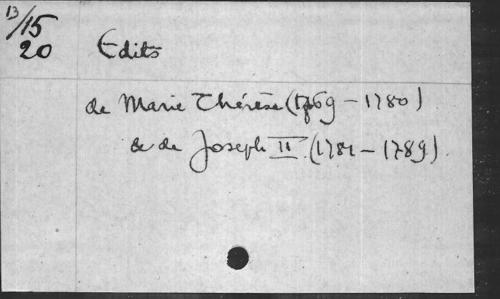 13/15
20
Edits
de Marie Thérèse (1769 - 1780)
& de Joseph II (1781 - 1789).